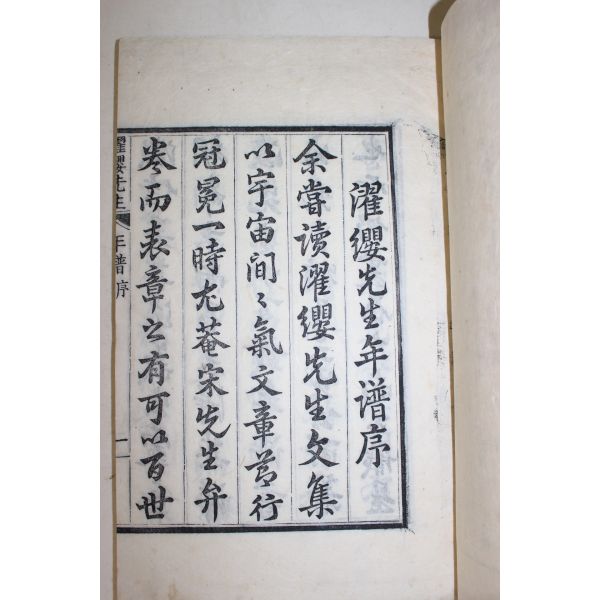 濯纓先生年譜序
余嘗讀濯纓先生文集
以宇宙間〻氣文章節行
冠冕一時尤菴宋先生弁
卷而表章之有可以百世
濯纓先生 年譜序 一